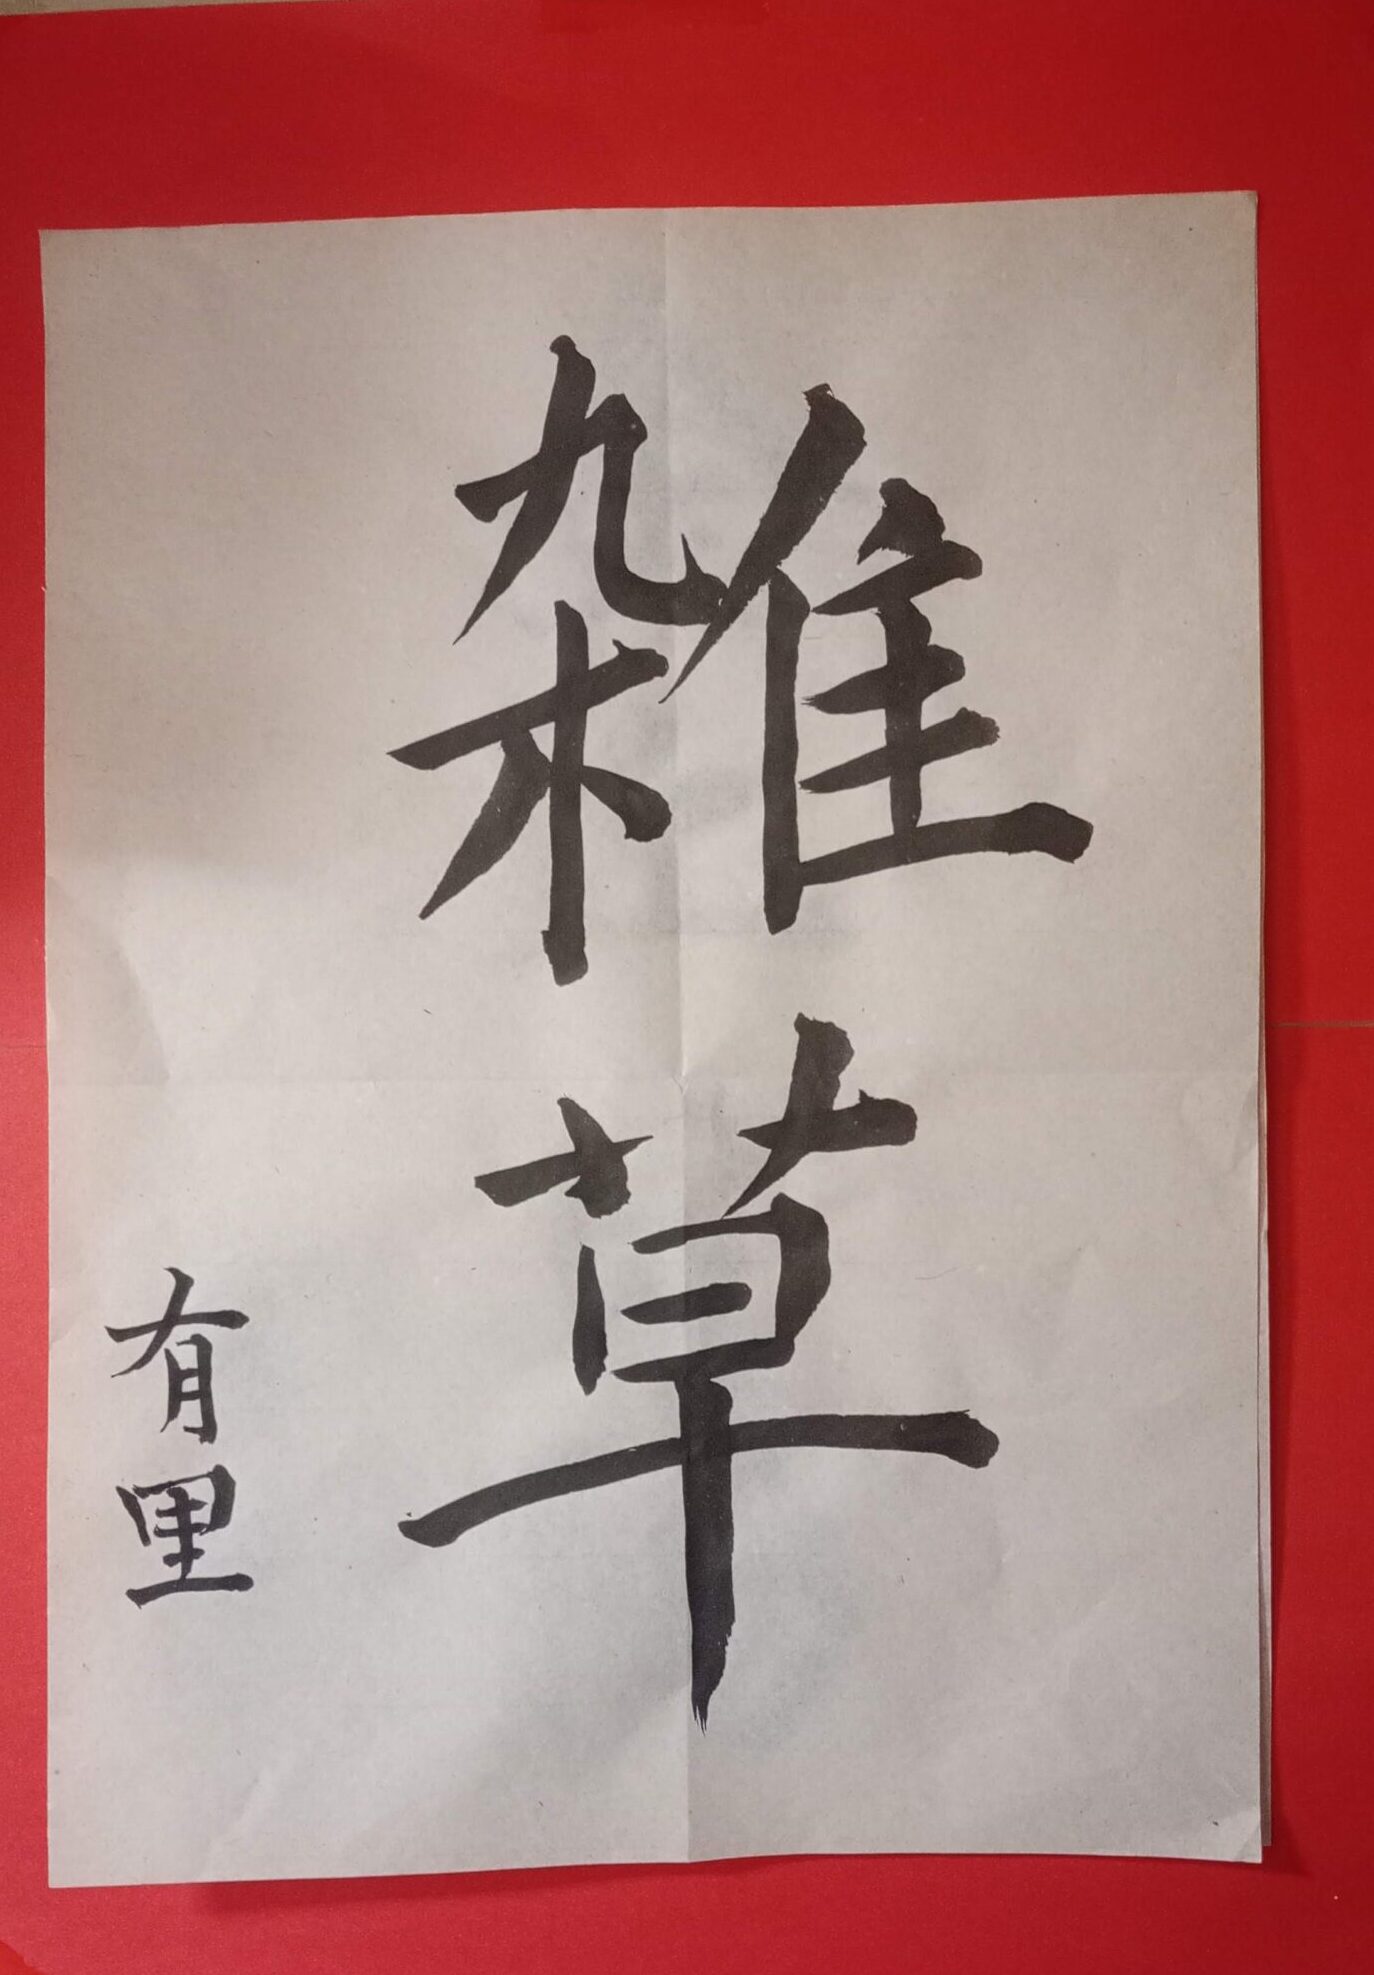 雑草
有里